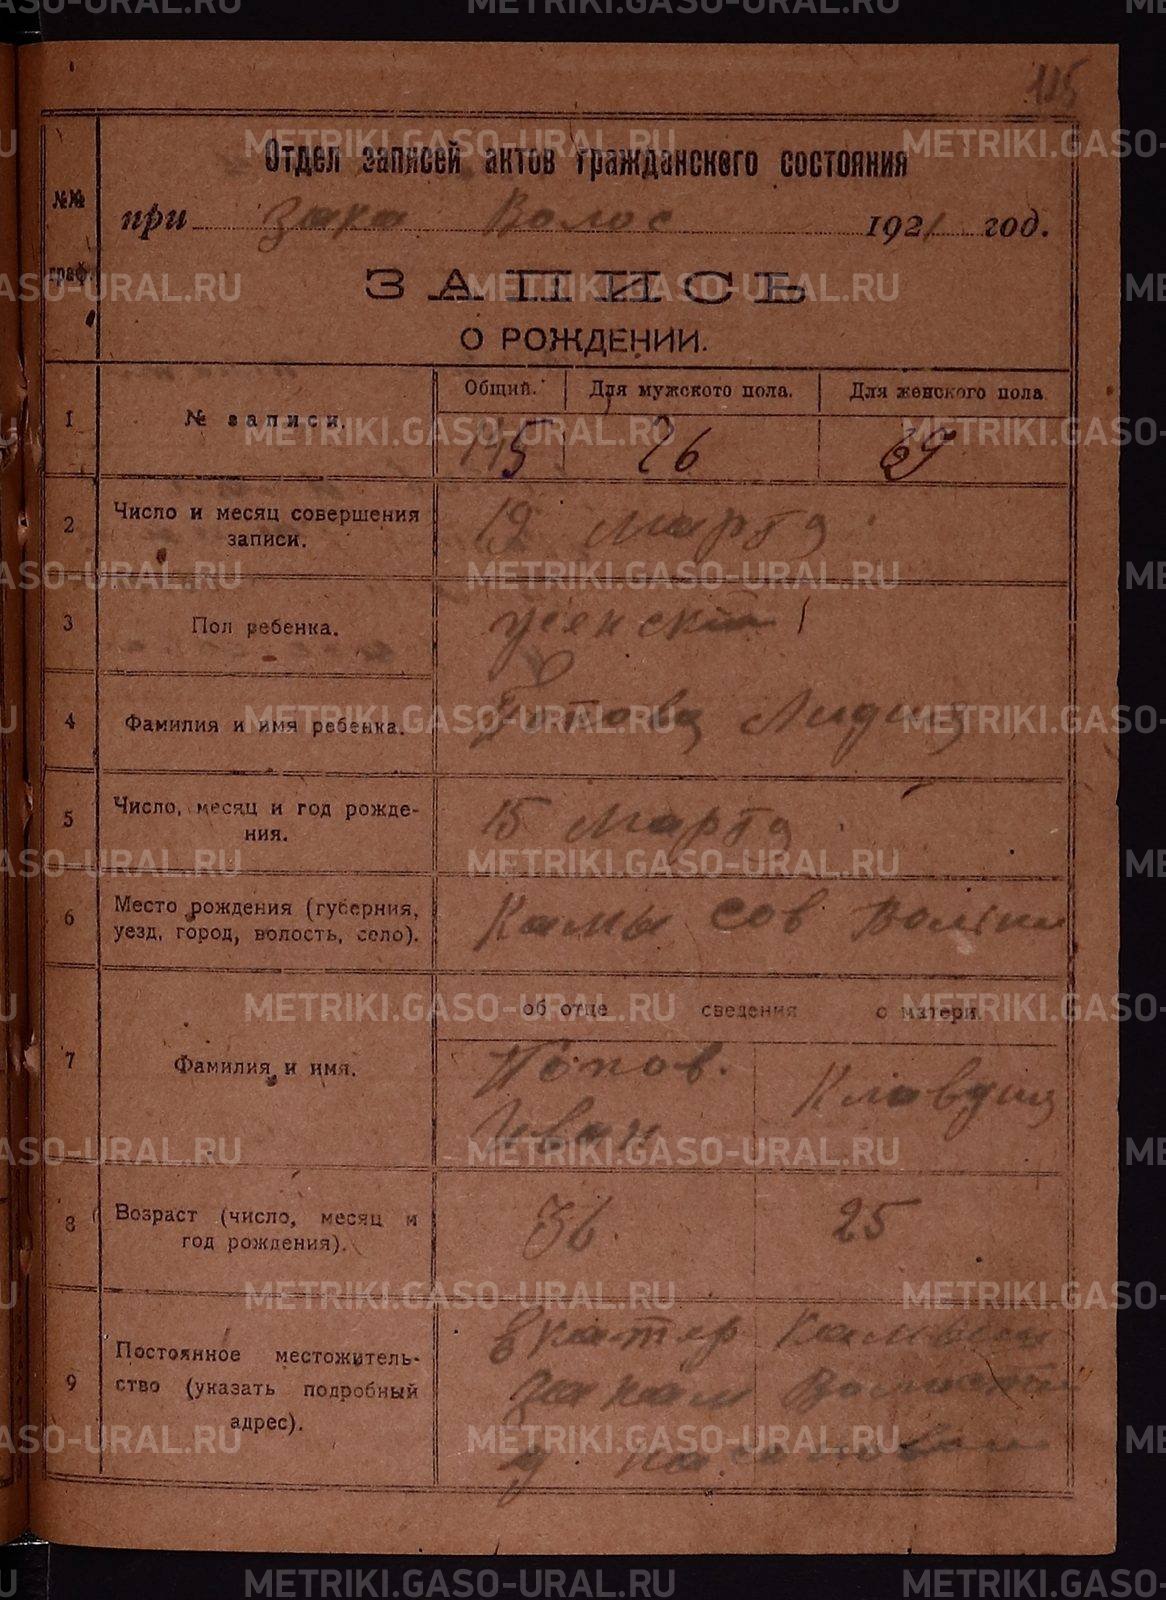 115
Отдел записей актов гражданского состояния
№№ граф.
при Зака Волос 1921 год.
ЗАПИСЬ
О РОЖДЕНИИ.
1 № записи. Общий. Для мужского пола. Для женского пола.
26
2 Число и месяц совершения записи. 19 Марта
3 Пол ребенка. женский
4 Фамилия и имя ребенка. Попова Лидия
5 Число, месяц и год рождения. 15 Марта
6 Место рождения (губерния, уезд, город, волость, село). Камы сов
об отце сведения о матери.
7 Фамилия и имя. Попов. Иван Клавдия
8 Возраст (число, месяц и год рождения). 36 25
9 Постоянное местожительство (указать подробный адрес). Екатер
METRIKI.GASO-URAL.RU